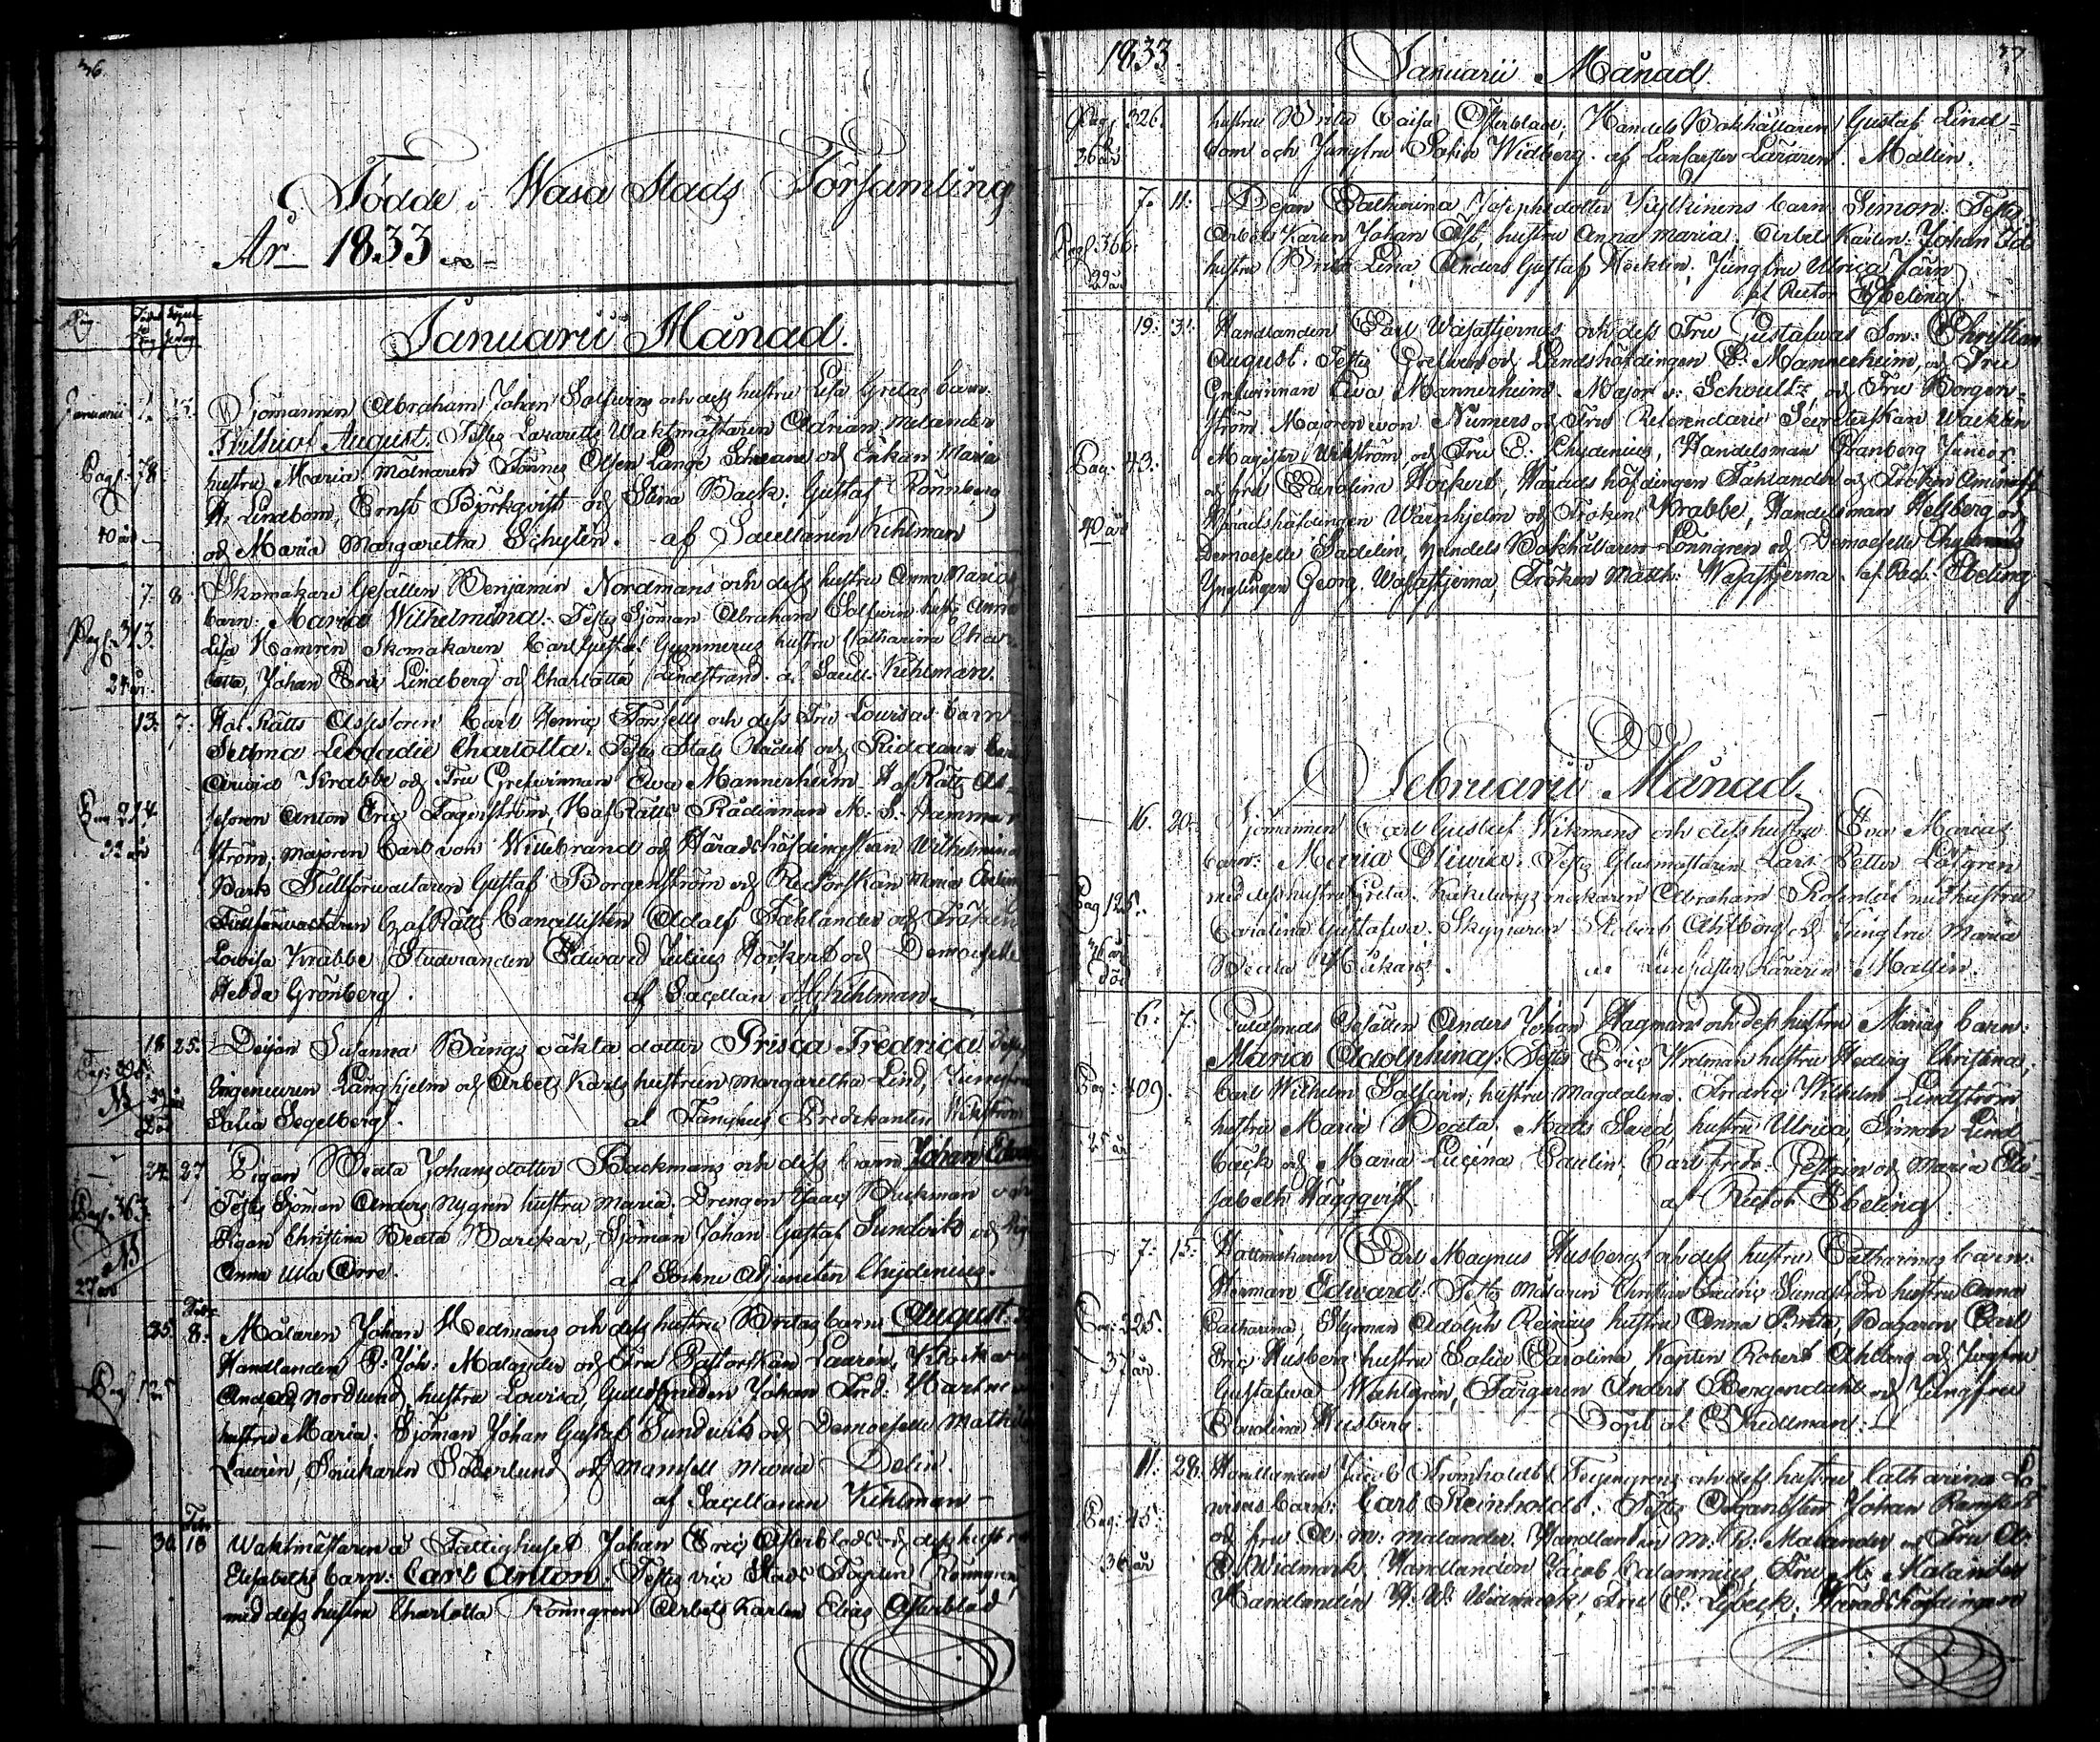 36.
Födde i Wasa Stads Församling
År 1833
Januarii Månad.
Januarii
Sjömannen Abraham Johan Solfwins och dess hustru Lisa Gretas barn:
Frithiof August. Testes Lazaretts Waktmästaren Adrian Melander
hustru Maria. Mölnaren Tönnes Olsen Lange och Enkan Maria
H. Lindbom, Ernst Björkqvist och Stina Back. Gustaf Rönnberg
och Maria Margaretha Schylin. af Sacellanen Kihlman
Pag. 78.
40 år
7. 8.
Skomakare Gesällen Benjamin Nordmans och dess hustru Anna Marias
barn: Maria Wilhelmina. Testes Sjöman Abraham Solfwin hustru Anna
Lisa Hamrén Skomakaren Carl Gustaf Gummerus hustru Catharina Char-
lotta, Johan Eric Lindberg och Charlotta Lindstrand. af Sacell. Kihlman.
Pag. 313.
24 år.
13. 7.
Hof Rätts Assessoren Carl Henric Forssells och dess Fru Lovisas barn
Selima Leocadie Charlotta. Testes Stats Rådet och Riddaren
Krabbe och Fru Grefwinnan Ewa Mannerheim. Hof Rätts As-
sessoren Anton Eric Fagerström, Hof Rätts Rådinnan M. S. Hammar-
ström, Majoren Carl von Willebrand och Häradshöfdingskan Wilhelmina
Bark Tullförwaltaren Gustaf Borgenström och Rectorskan Maria Ebeling
Hof Rätts Cancellisten Adolf Fahlander och Fröken
Lovisa Krabbe, Studeranden Edward Julius Höckert och Demoiselle
Hedda Grönberg. af Sacellan Kihlman.
Pag. 274.
33 år
18 25.
Deijan Susanna Bångs oäkta dotter Prisca Fredrica. Testes
Ingenieuren Långhjelm och Arbets Karls hustrun Margaretha Lind, Jungfru
Safia Segelberg. af Fånghus Predikanten Wikström
39 år
Död
24. 27
Pigan Beata Johansdotter Backmans och dess barn Johan Edward
Testes Sjöman Anders Nygren hustru Maria, Drengen Isaac Backman och
Pigan Christina Beata, Sjöman Johan Gustaf Sundwik och Pigan
Anna Ulla Orre. af Sockne Adjuncten Chydenius.
Pag. 363.
27 år
25. Feb. 8.
Målaren Johan Hedmans och dess hustru Britas barn August.
Handlanden P. Joh: Malander och Fru Pastorskan Laurén,
Nordlund, hustru Lovisa, Guldsmeden Johan Fred:
hustru Maria. Sjöman Johan Gustaf Sundwik och Demoiselle Mathilda
Laurén, Snickaren Söderlund och Mamsell Maria Delin.
af Sacellanen Kihlman
30. Feb. 10
Waktmästaren å Fattighuset Johan Eric Österblads och dess hustru
Elisabeths barn: Carl Anton: Testes vice Stads Fogden Rönngren
med dess hustru Charlotta Rönngren Arbets Karlen Elias Österblad
1833. Januarii Månad 37
Pag. 326.
36 år
hustru Brita Caisa Österblad, Handels Bokhållaren Gustaf Lind-
bom och Jungfru Safia Widberg. af Lancaster Läraren. Mallin.
7. 11.
Dejan Catharina Josephsdotter Kyllinens barn Simon: Testes
Arbets Karlen Johan Ost hustru Anna Maria, Arbets Karlen Johan
hustru Brita Lena, Anders Gustaf Hecklin, Jungfru Ulrica Järn
af Rector Ebeling
Pag. 366
29 år
19. 31.
Handlanden Carl Wasastjernas och dess Fru Gustafwas Son: Christian
August. Testes Grefwen och Landshöfdingen C. Mannerheim, och Fru
Grefwinnan Ewa Mannerheim. Major v. Schoultz, och Fru Borgen-
ström Majoren von Numers och Fru Referendarie Secreterskan Wacklin
Magister Wikström, och Fru C. Chydenius, Handelsman Granberg Junior
och fru Carolina Höckert, Häradshöfdingen Fahlander och Fröken Aminoff
Häradshöfdingen Wärnhjelm och Fröken Krabbe, Handelsman Hellberg och
Demoiselle Sadelin, Handels Bokhållaren Lönngren och Demoiselle
Ynglingen Georg Wasastjerna, Fröken Math: Wasastjerna. af Rect. Ebeling
Pag. 43.
40 år
Februarii Månad.
16. 20.
Sjömannen Carl Gustaf Wikmans och dess hustru Ewa Marias
barn: Maria Oliwia. Testes Glasmästaren Lars Petter Löfgren
med dess hustru Greta. Kakelungsmakaren Abraham Rosenlöf med hustru
Carolina Gustafwa. Skepparen Robert Ahlborg och Jungfru Maria
Beata. af Lancaster Läraren Mallin.
Pag. 125.
36 år
död
6. 7.
Guldsmeds Gesällen Anders Johan Hagmans och dess hustru Marias barn:
Maria Adolphina. Testes Eric Wedman hustru Hedwig Christina,
Carl Wilhelm Solfwin, hustru Magdalena. Fredric Wilhelm Lindström
hustru Maria Beata. Matts Swed, hustru Ulrica, Simon Lind-
bäck och Maria Lucina Paulin. Carl Fredr. och Maria Eli-
sabeth Häggqvist. af Rector Ebeling
Pag. 409.
25 år
7. 15.
Hattmakaren Carl Magnus Husbergs och dess hustru Catharinas barn:
Herman Edward. Testes Målaren Christian Fredric Sundström hustru Anna
Catharina, Styrman Adolph Reinius hustru Anna Brita, Bagaren Carl
Eric Husberg hustru Safia Carolina, Kapten Robert Ahlborg och Jungfru
Gustafwa Wahlgrén, Färgaren Anders Bergendahl och Jungfru
Carolina Husberg. Döpt af Hedman.
Pag. 225.
37 år.
11. 28.
Handlanden Jacob Stromholdt och dess hustru Catharina
barn: Carl Reinholdt. Testes Organisten Johan
och fru A. M. Malander. Handlanden M. R. Malander och Fru
Widmark. Handlanden Jacob Calamnius, Fru M. Malander
Handlanden W. Widmark, Fru E. Lybeck, Häradshöfdingen
Pag. 45.
36 år